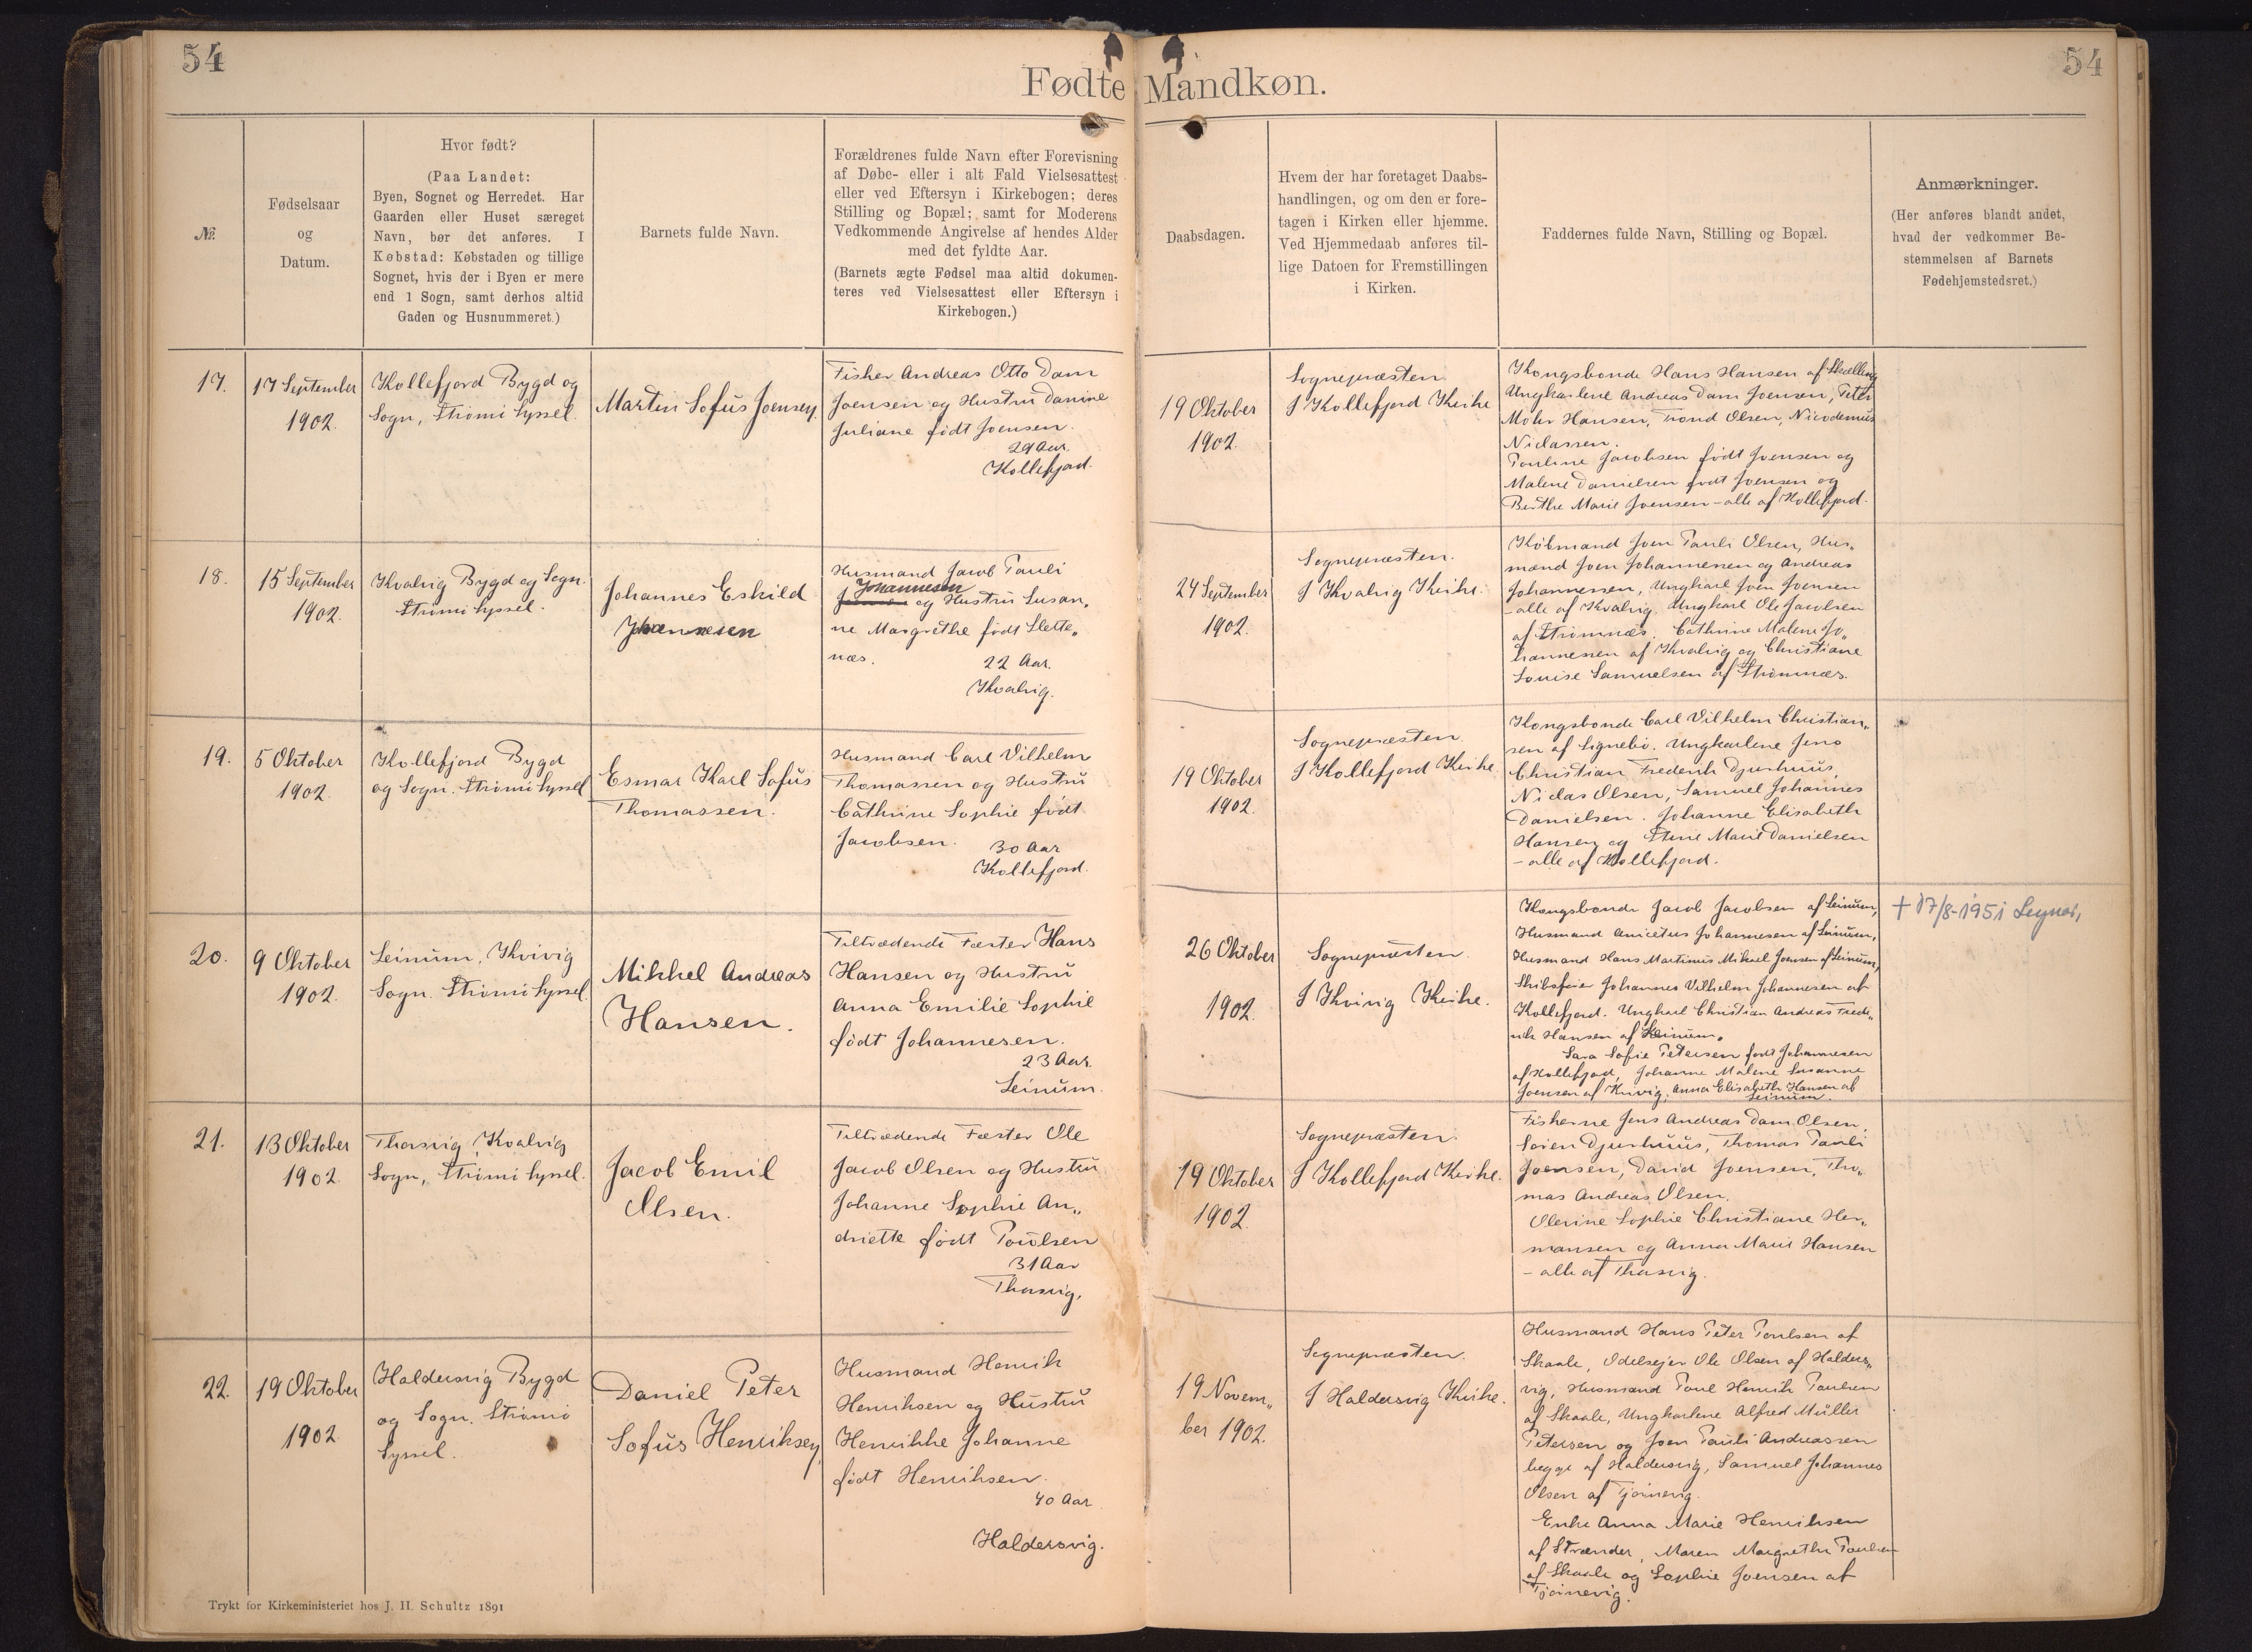 54
54
Fødte Mandkøn.
№.
Fødselsaar
og
Datum.
Hvor født?
(Paa Landet:
Byen, Sognet og Herredet. Har
Gaarden eller Huset særeget
Navn, bør det anføres. I
Købstad: Købstaden og tillige
Sognet, hvis der i Byen er mere
end 1 Sogn, samt derhos altid
Gaden og Husnummeret.)
Barnets fulde Navn.
Forældrenes fulde Navn efter Forevisning
af Døbe- eller i alt Fald Vielsesattest
eller ved Eftersyn i Kirkebogen; deres
Stilling og Bopæl; samt for Moderens
Vedkommende Angivelse af hendes Alder
med det fyldte Aar.
(Barnets ægte Fødsel maa altid dokumen-
teres ved Vielsesattest eller Eftersyn i
Kirkebogen.)
Daabsdagen.
Hvem der har foretaget Daabs-
handlingen, og om den er fore-
tagen i Kirken eller hjemme.
Ved Hjemmedaab anføres til-
lige Datoen for Fremstillingen
i Kirken.
Faddernes fulde Navn, Stilling og Bopæl.
Anmærkninger.
(Her anføres blandt andet,
hvad der vedkommer Be-
stemmelsen af Barnets
Fødehjemstedsret.)
17.
17 September
1902.
Kollefjord Bygd og
Sogn, Strømø Syssel.
Martin Sofus Joensen
Fisker Andreas Otto Dam
Joensen og Hustru Danine
Juliane født Joensen.
29 Aar.
Kollefjord.
19 Oktober
1902.
Sognepræsten
I Kollefjord Kirke
Kongsbonde Hans Hansen af Skælling
Ungkarlene Andreas Dam Joensen, Peter
Mohr Hansen, Trond Olsen, Nicodemus
Niclassen.
Pouline Jacobsen født Joensen og
Malene Danielsen født Joensen og
Berthe Marie Joensen - alle af Kollefjord.
18.
15 September
1902.
Kvalvig Bygd og Sogn.
Strømø Syssel.
Johannes Eskild
Johannesen
Husmand Jacob Pauli
Johannesen
og Hustru Susan„
ne Margrethe født Slette„
næs.
22 Aar.
Kvalvig.
24 September
1902.
Sognepræsten.
I Kvalvig Kirke.
Købmand Joen Pauli Olsen, Hus„
mænd Joen Johannesen og Andreas
Johannessen, Ungkarl Joen Joensen
- alle af Kvalvig. Ungkarl Ole Jacobsen
af Strømnæs. Cathrine Malene Jo„
hannesen af Kvalvig og Christiane
Louise Samuelsen af Strømnæs.
19.
5 Oktober
1902.
Kollefjord Bygd
og Sogn. Strømø Syssel
Esmar Karl Sofus
Thomassen.
Husmand Carl Vilhelm
Thomassen og Hustru
Cathrine Sophie født
Jacobsen.
30 Aar
Kollefjord.
19 Oktober
1902.
Sognepræsten
I Kollefjord Kirke
Kongsbonde Carl Vilhelm Christian„
sen af Signebø. Ungkarlene Jens
Christian Frederik Djurhuus,
Niclas Olsen, Samuel Johannes
Danielsen. Johanne Elisabeth
Hansen og Stine Marie Danielsen
- alle af Kollefjord.
20.
9 Oktober
1902.
Leinum, Kvivig
Sogn. Strømø Syssel.
Mikkel Andreas
Hansen.
Tiltrædende Fæster Hans
Hansen og Hustru
Anna Emilie Sophie
født Johannesen.
23 Aar.
Leinum.
26 Oktober
1902.
Sognepræsten.
I Kvivig Kirke.
Kongsbonde Jacob Jacobsen af Leinum,
Husmand Anicetus Johannesen af Leinum,
Husmand Hans Martinus Mikael Joensen af Leinum,
Skibsfører Johannes Vilhelm Johannesen af
Kollefjord. Ungkarl Christian Andreas Frede„
rik Hansen af Leinum.
Sara Sofie Petersen født Johannesen
af Kollefjord, Johanne Malene Susanne
Joensen af Kvivig, Anna Elisabeth Hansen af
Leinum.
+ 17/8-1951
21.
13 Oktober
1902.
Thorsvig, Kvalvig
Sogn, Strømø Syssel.
Jacob Emil
Olsen.
Tiltrædende Fæster Ole
Jacob Olsen og Hustru
Johanne Sophie An„
driette født Poulsen
31 Aar
Thorsvig.
19 Oktober
1902.
Sognepræsten.
I Kollefjord Kirke.
Fiskerne Jens Andreas Dam Olsen,
Søren Djurhuus, Thomas Pauli
Joensen, David Joensen, Tho„
mas Andreas Olsen.
Olevine Sophie Christiane Her„
mansen og Anna Marie Hansen
- alle af Thorsvig.
22.
19 Oktober
1902.
Haldersvig Bygd
og Sogn. Strømø
Syssel.
Daniel Peter
Sofus Henriksen,
Husmand Henrik
Henriksen og Hustru
Henrikke Johanne
født Henriksen.
40 Aar.
Haldersvig.
19 Novem„
ber 1902.
Sognepræsten.
I Haldersvig Kirke.
Husmand Hans Peter Poulsen af
Skaale, Odelsejer Ole Olsen af Halders„
vig, Husmand Poul Henrik Poulsen
af Skaale, Ungkarlene Alfred Müller
Petersen og Joen Pauli Andreassen
begge af Haldersvig, Samuel Johannes
Olsen af Tjørnevig.
Enke Anna Marie Henriksen
af Strænder, Maren Margrethe Poulsen
af Skaale og Sophie Joensen af
Tjørnevig.
Trykt for Kirkeministeriet hos J. H. Schultz 1891